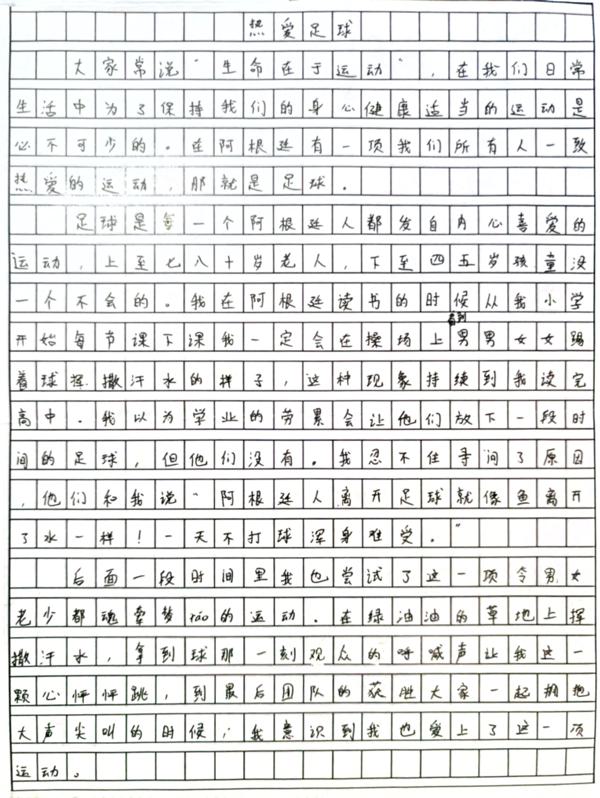 热爱足球
大家常说"生命在于运动"，在我们日常
生活中为了保持我们的身心健康适当的运动是
必不可少的。在阿根廷有一项我们所有人一致
热爱的运动，那就是足球。
足球是每一个阿根廷人都发自内心喜爱的
运动，上至七八十岁老人，下至四五岁孩童没
一个不会的。我在阿根廷读书的时候从我小学
开始每节课下课我一定会在操场上看到男男女女踢
着球挥撒汗水的样子，这种现象持续到我读完
高中。我以为学业的劳累会让他们放下一段时
间的足球，但他们没有。我忍不住寻问了原因
，他们和我说"阿根廷人离开足球就像鱼离开
了水一样！一天不打球浑身难受。"
后面一段时间里我也尝试了这一项令男女
老少都魂牵梦rao的运动。在绿油油的草地上挥
撒汗水，拿到球那一刻观众的呼喊声让我这一
颗心怦怦跳，到最后团队的获胜大家一起拥抱
大声尖叫的时候，我意识到我也爱上了这一项
运动。